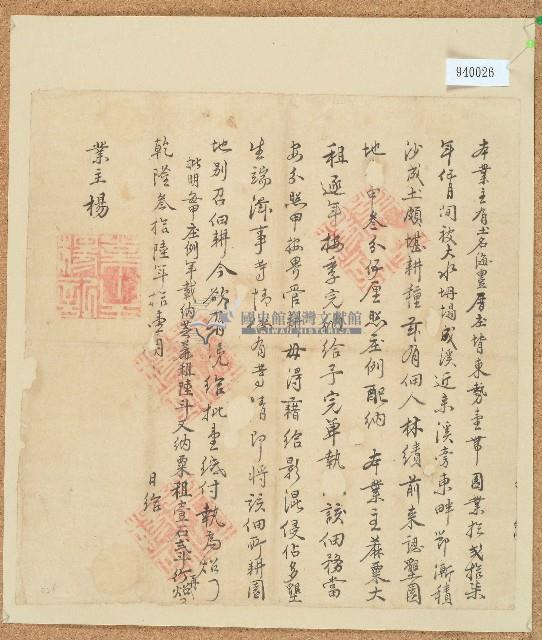 940026
本業主有土名海豊厝庄背東勢壹帶園業於弍拾柒
年仔月間被大水坍塌成溪近來溪旁東畔卽漸積
沙成土頗堪耕種茲有佃人林績前來認墾園
地 甲叁分仔厘照庄例配納 本業主蔴粟大
租逐年按季完納給予完單執 該佃務當
安分照甲按界管耕毋得藉給影混侵佔多墾
生端滋事等情 有 即將該佃所耕園
地別召佃耕今欲有憑給批壹紙付執為炤
批明每甲庄例年載納芝蔴租陸斗又納粟租壹石 再炤
乾隆叁拾陸年拾壹月 日給
業主楊
國史館臺灣文獻館
TAIWAN HISTORICA